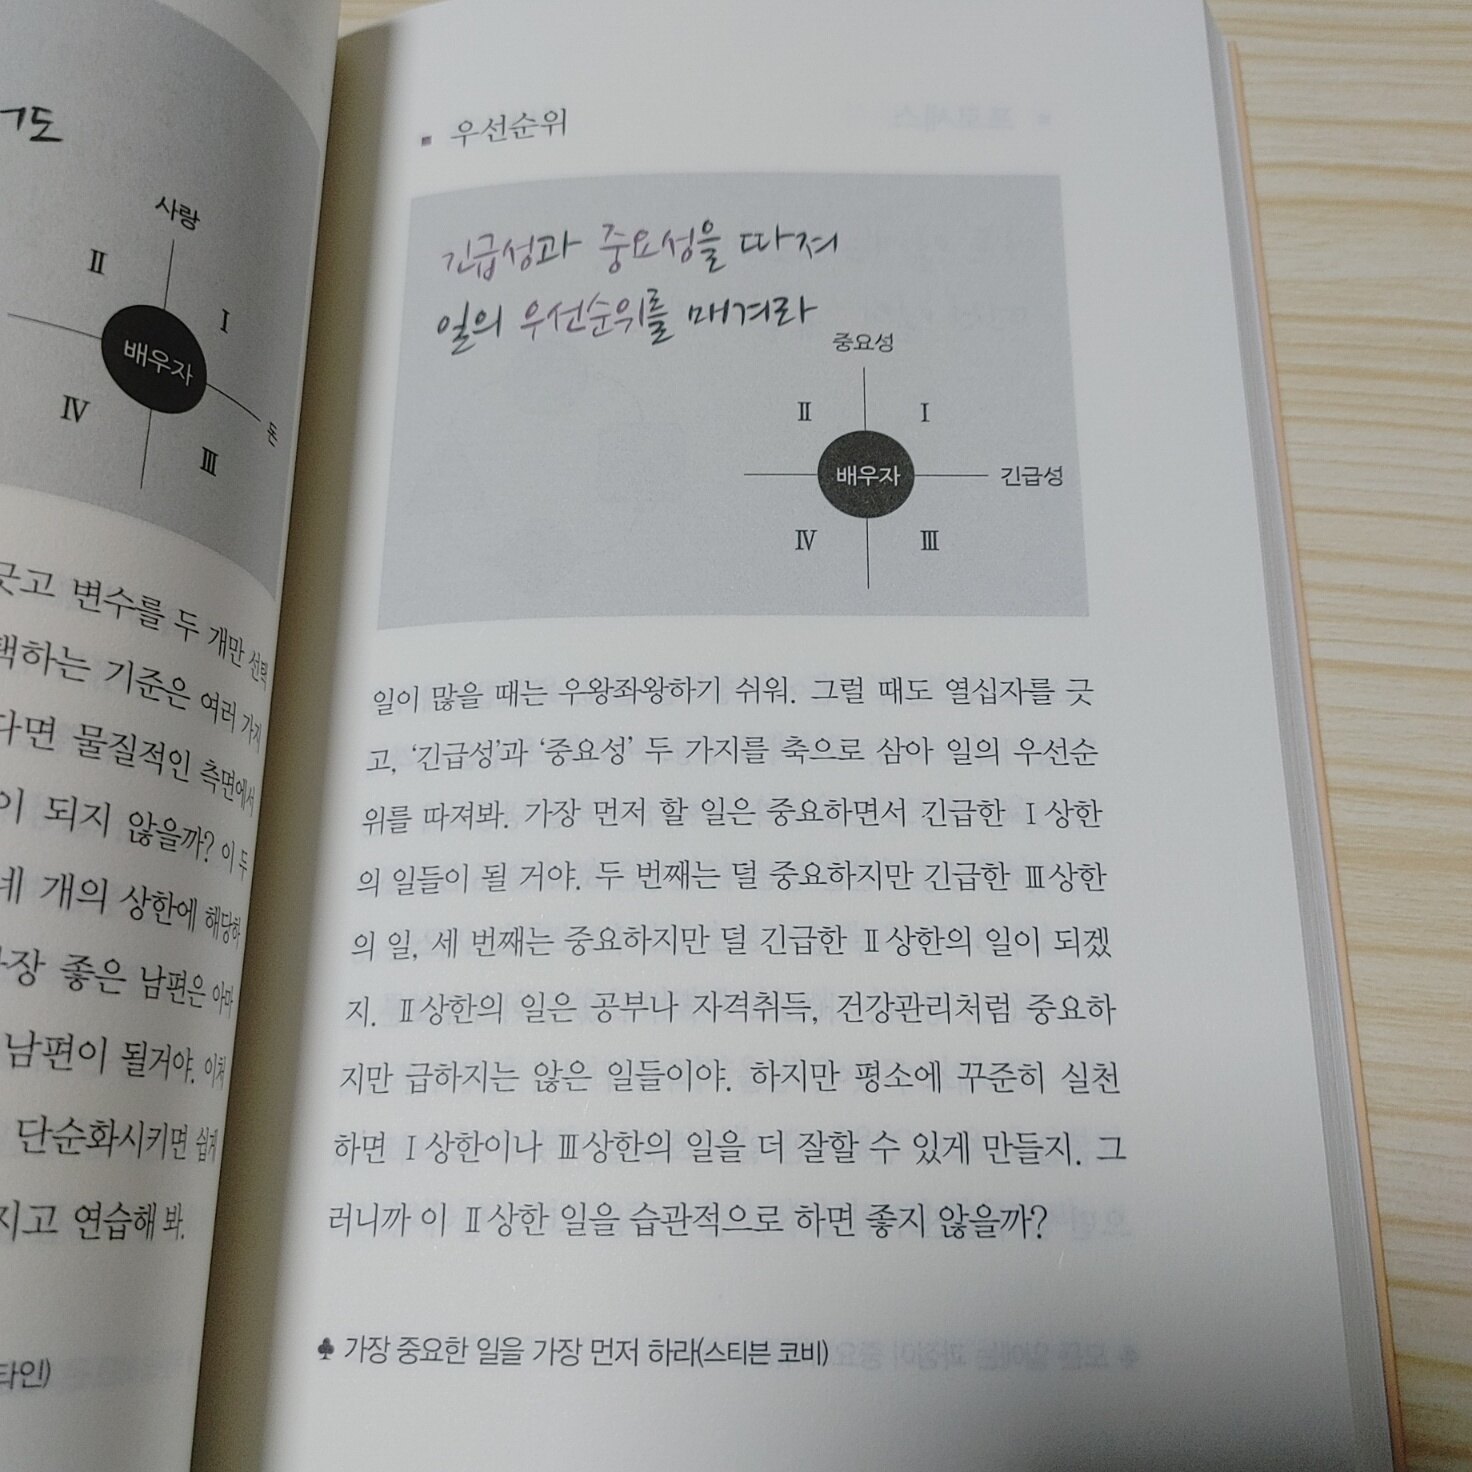 사랑
Ⅱ
Ⅰ
배우자
Ⅳ
돈
Ⅲ
긋고 변수를 두 개만 선택
택하는 기준은 여러 가지
다면 물질적인 측면에서
이 되지 않을까? 이 두
네 개의 상한에 해당하
가장 좋은 남편은 아마
남편이 될거야. 이처
단순화시키면 쉽게
지고 연습해 봐.
타인)
우선순위
긴급성과 중요성을 따져
일의 우선순위를 매겨라
중요성
Ⅱ
Ⅰ
배우자
긴급성
Ⅳ
Ⅲ
일이 많을 때는 우왕좌왕하기 쉬워. 그럴 때도 열십자를 긋
고, ‘긴급성’과 ‘중요성’ 두 가지를 축으로 삼아 일의 우선순
위를 따져봐. 가장 먼저 할 일은 중요하면서 긴급한 Ⅰ상한
의 일들이 될 거야. 두 번째는 덜 중요하지만 긴급한 Ⅲ상한
의 일, 세 번째는 중요하지만 덜 긴급한 Ⅱ상한의 일이 되겠
지. Ⅱ상한의 일은 공부나 자격취득, 건강관리처럼 중요하
지만 급하지는 않은 일들이야. 하지만 평소에 꾸준히 실천
하면 Ⅰ상한이나 Ⅲ상한의 일을 더 잘할 수 있게 만들지. 그
러니까 이 Ⅱ상한 일을 습관적으로 하면 좋지 않을까?
♣ 가장 중요한 일을 가장 먼저 하라(스티븐 코비)